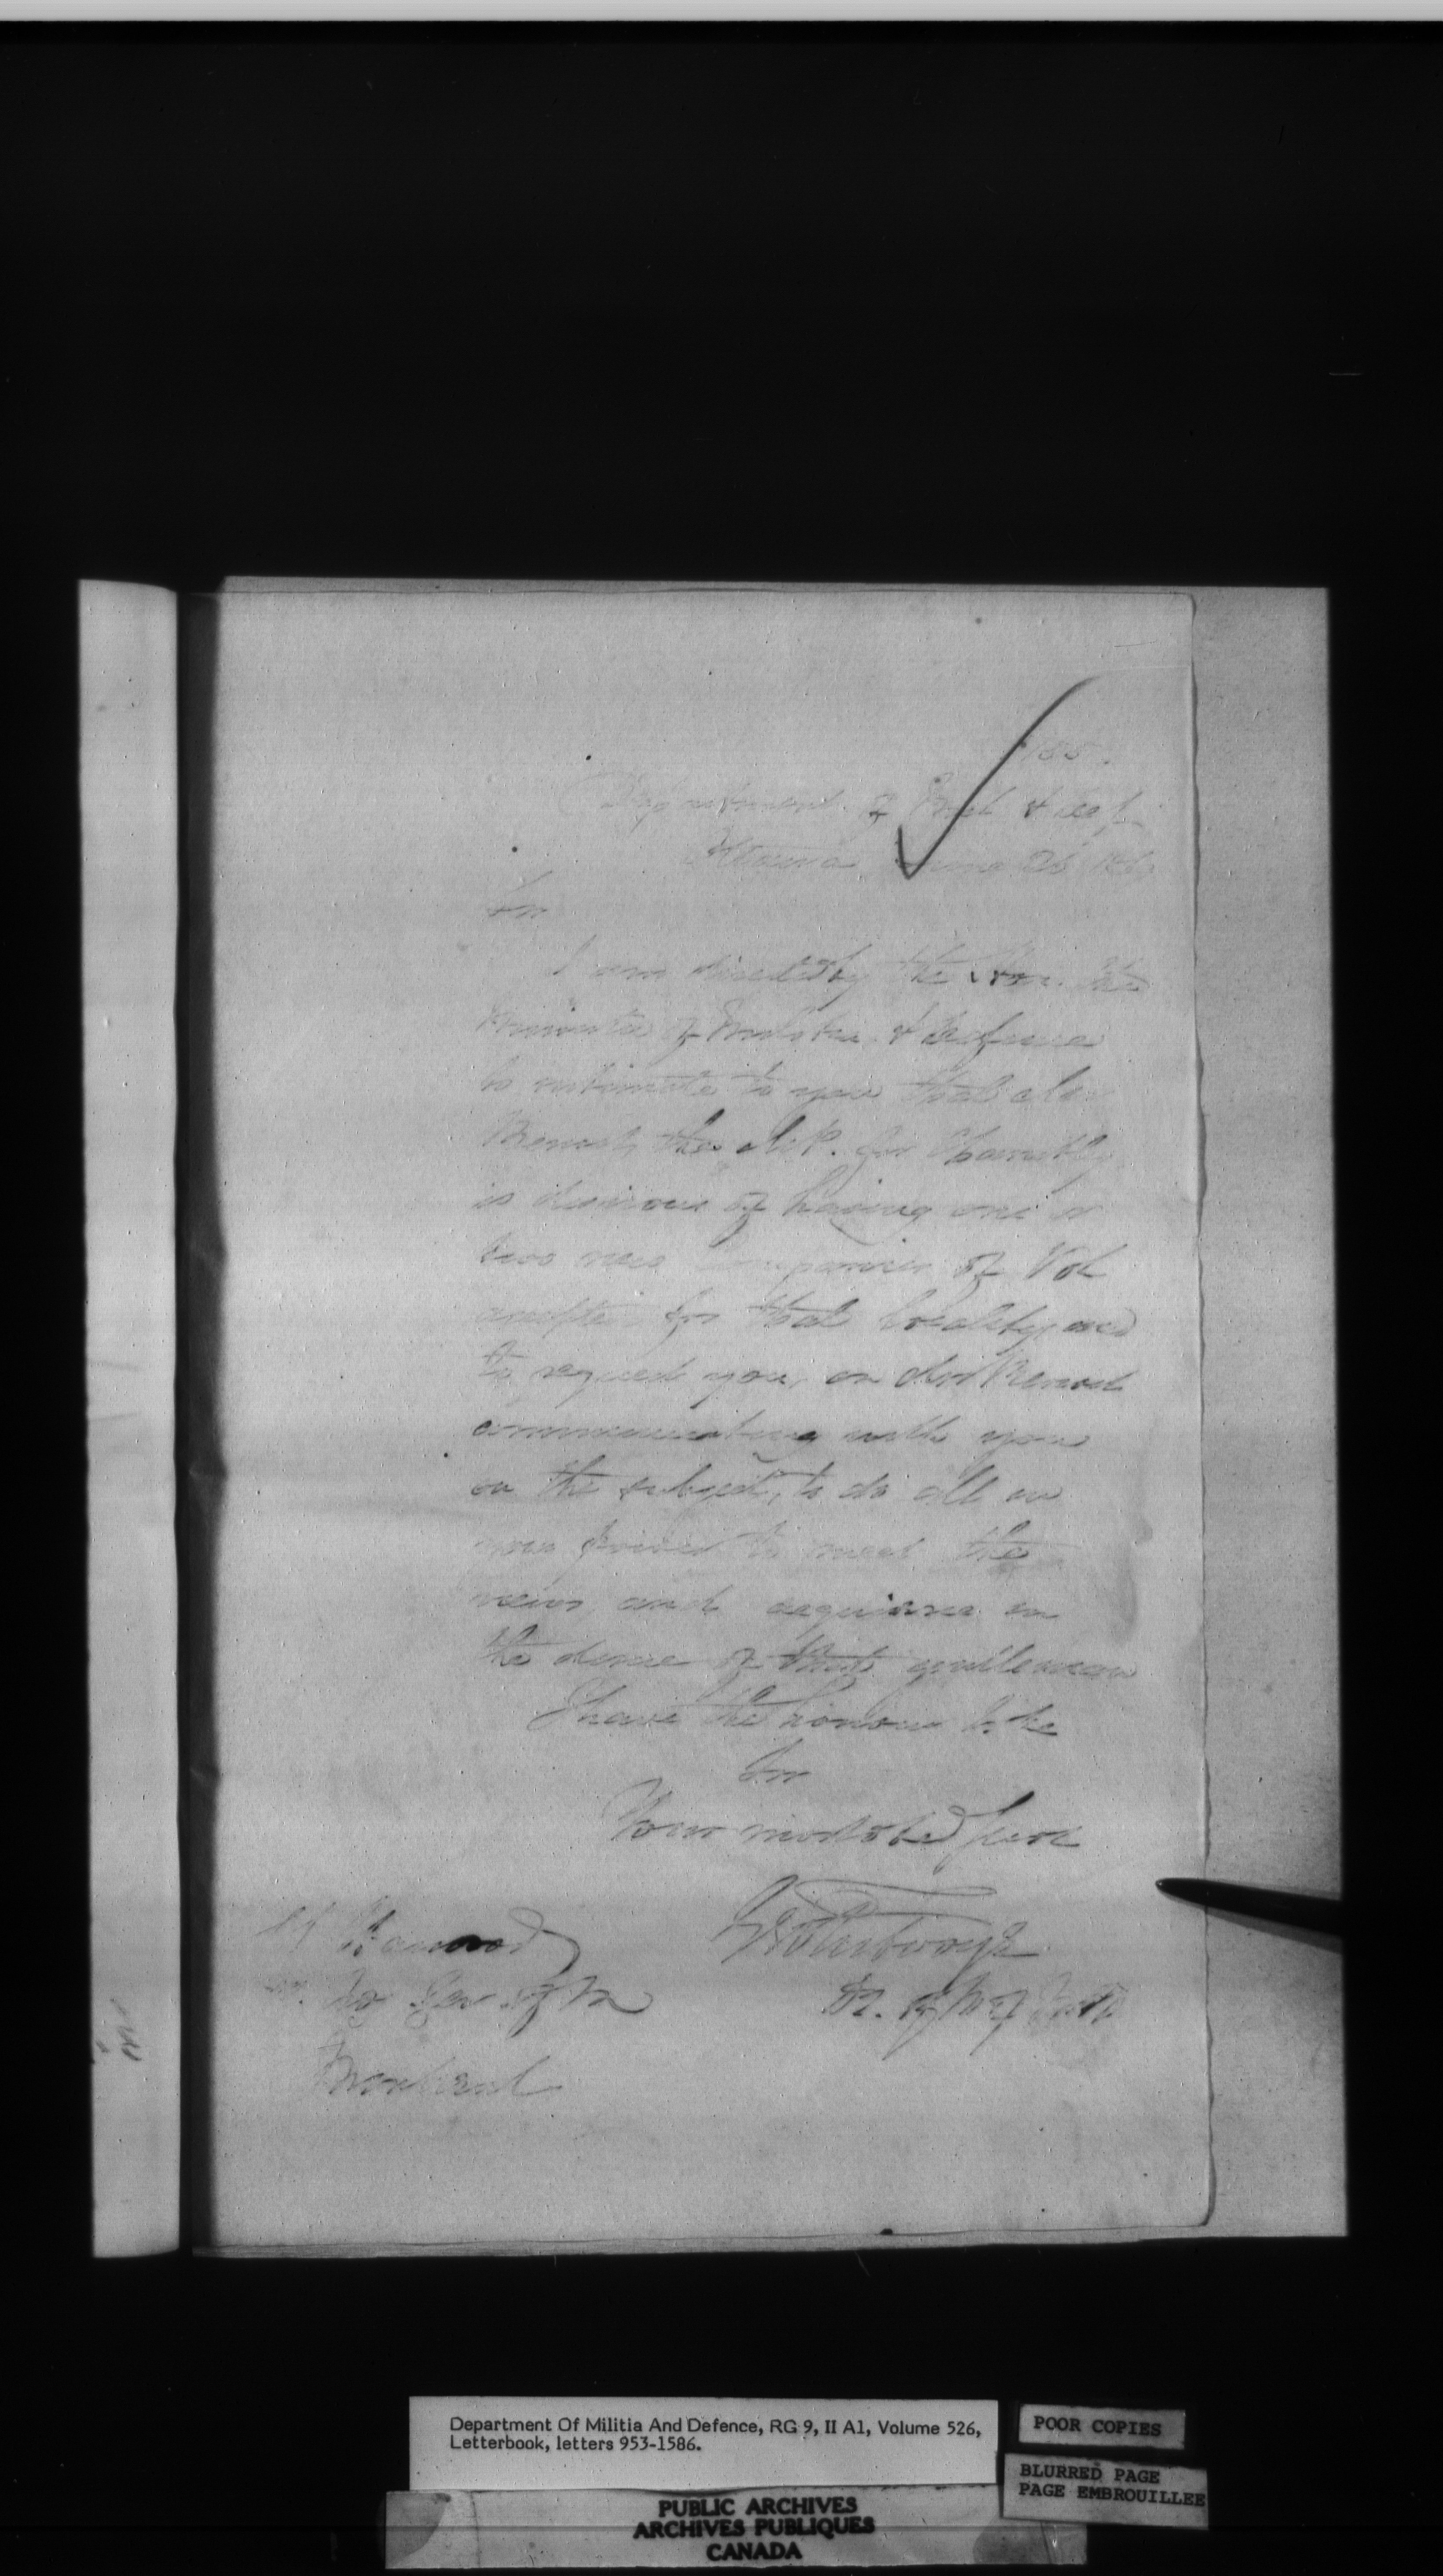 Department of Mil & Def
Ottawa June 26
Sir
I am directed by the Hon. the
Minister of Militia & Defence
to intimate to you that Mr
Benoit, the M.P. for Chambly
is desirous of having one or
two new companies of Vol
for that locality, and
to request you, on Mr Benoit
communicating with you
on the subject, to do all in
your power to meet the
views and acquiesce in
the desire of that gentleman
I have the honour to be
Sir
Your most obed Servt
of M of
Montreal
Department Of Militia And Defence, RG 9, II A1, Volume 526,
Letterbook, letters 953-1586.
POOR COPIES
BLURRED PAGE
PAGE EMBROUILLEE
PUBLIC ARCHIVES
ARCHIVES PUBLIQUES
CANADA